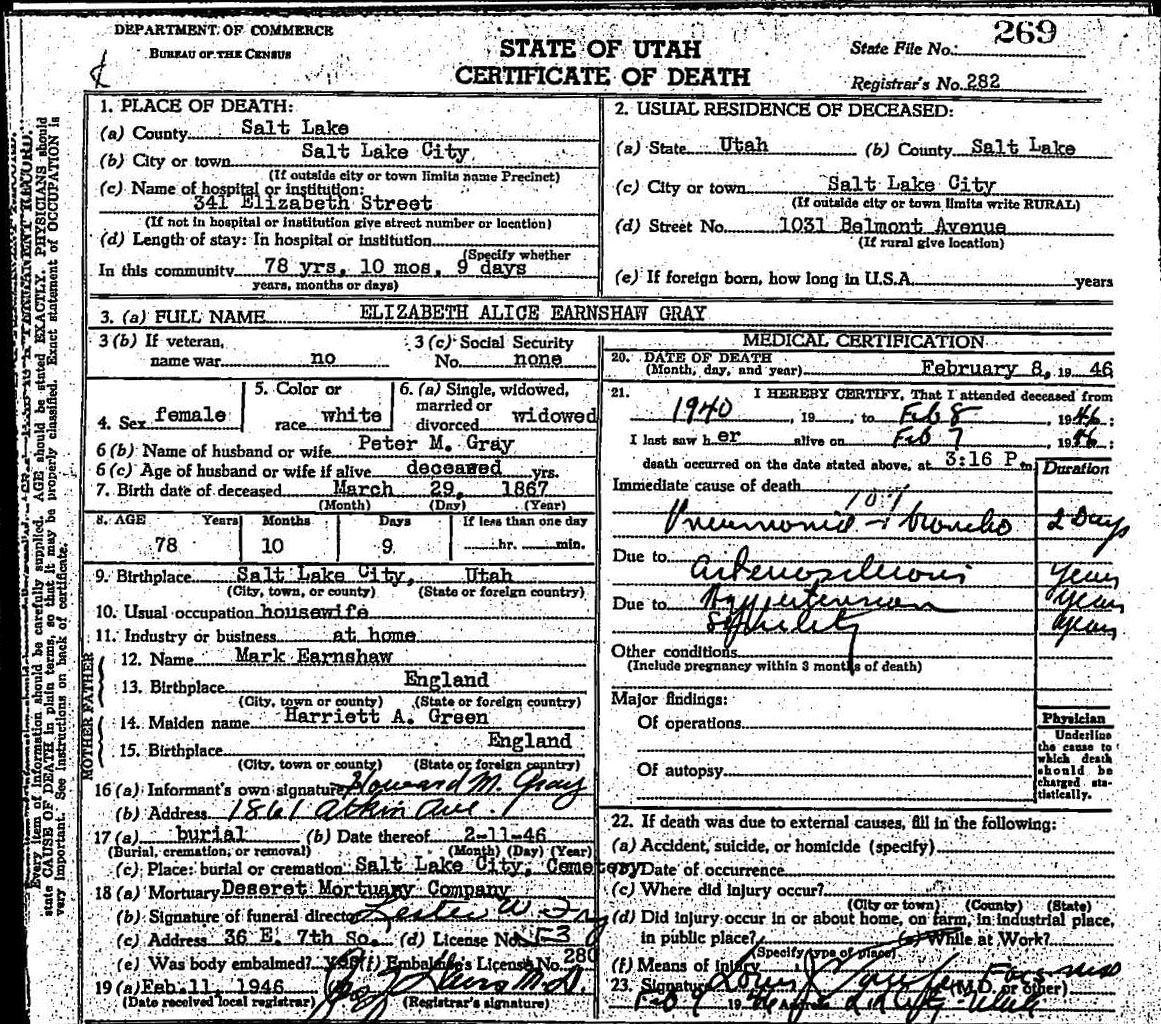 DEPARTMENT OF COMMERCE
BUREAU OF THE CENSUS
STATE OF UTAH
CERTIFICATE OF DEATH
State File No. 269
Registrar's No. 282
1. PLACE OF DEATH:
(a) County Salt Lake
(b) City or town Salt Lake City
(If outside city or town limits name Precinct)
(c) Name of hospital or institution:
341 Elizabeth Street
(If not in hospital or institution give street number or location)
(d) Length of stay: In hospital or institution
(Specify whether
In this community 78 yrs, 10 mos, 9 days
years, months or days)
2. USUAL RESIDENCE OF DECEASED:
(a) State Utah (b) County Salt Lake
(c) City or town Salt Lake City
(If outside city or town limits write RURAL)
(d) Street No. 1031 Belmont Avenue
(If rural give location)
(e) If foreign born, how long in U.S.A. years
3. (a) FULL NAME ELIZABETH ALICE EARNSHAW GRAY
3 (b) If veteran, name war no
3 (c) Social Security No. none
4. Sex female
5. Color or race white
6. (a) Single, widowed, married or divorced widowed
6 (b) Name of husband or wife Peter M. Gray
6 (c) Age of husband or wife if alive deceased yrs.
7. Birth date of deceased March 29, 1867
(Month) (Day) (Year)
8. AGE Years Months Days If less than one day
78 10 9 hr. min.
9. Birthplace Salt Lake City, Utah
(City, town, or county) (State or foreign country)
10. Usual occupation housewife
11. Industry or business at home
FATHER
12. Name Mark Earnshaw
13. Birthplace England
(City, town or county) (State or foreign country)
MOTHER
14. Maiden name Harriett A. Green
15. Birthplace England
(City, town or county) (State or foreign country)
16 (a) Informant's own signature Howard M. Gray
(b) Address 1861 Atkin Ave.
17 (a) burial (b) Date thereof 2-11-46
(Burial, cremation, or removal) (Month) (Day) (Year)
(c) Place: burial or cremation Salt Lake City, Cemetery
18 (a) Mortuary Deseret Mortuary Company
(b) Signature of funeral director Lester W.
(c) Address 36 E. 7th So. (d) License No.
(e) Was body embalmed? yes (f) Embalmer's License No. 280
19 (a) Feb. 11, 1946
(Date received local registrar) (Registrar's signature)
MEDICAL CERTIFICATION
20. DATE OF DEATH
(Month, day, and year) February 8, 19 46
21. I HEREBY CERTIFY, That I attended deceased from
1940, 19 , to Feb 8, 1946;
I last saw her alive on Feb 7 1946;
death occurred on the date stated above, at 3:16 P. m.
Duration
Immediate cause of death
107
Pneumonia - broncho 2 Days
Due to Arteriosclerosis years
Due to Hypertension years
Senility years
Other conditions
(Include pregnancy within 3 months of death)
Major findings:
Of operations
Of autopsy
Physician
Underline
the cause to
which death
should be
charged sta-
tistically.
22. If death was due to external causes, fill in the following:
(a) Accident, suicide, or homicide (specify)
(b) Date of occurrence
(c) Where did injury occur?
(City or town) (County) (State)
(d) Did injury occur in or about home, on farm, in industrial place,
in public place? (e) While at Work?
(Specify type of place)
(f) Means of Injury
23. Signature Louis J. (M.D. or other)
Feb 9 1946 Address
Every item of information should be carefully supplied. AGE should be stated EXACTLY. PHYSICIANS should
state CAUSE OF DEATH in plain terms, so that it may be properly classified. Exact statement of OCCUPATION is
very important. See instructions on back of certificate.